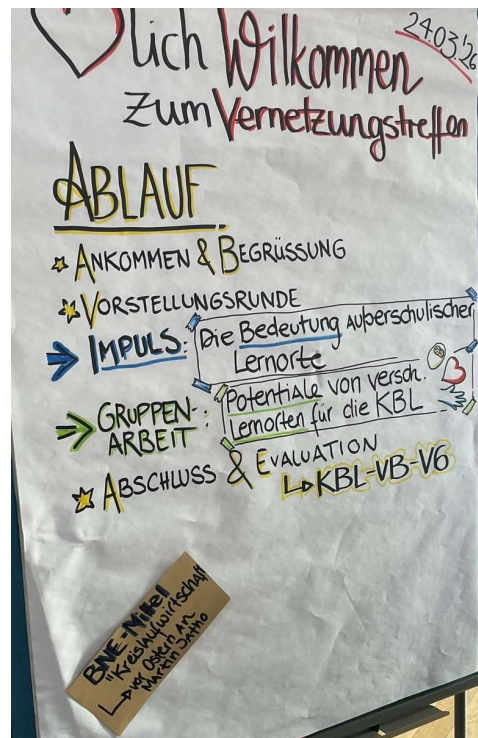 lich Wilkommen
24.03.'26
zum Vernetzungstreffen
ABLAUF
ANKOMMEN & BEGRÜSSUNG
VORSTELLUNGSRUNDE
IMPULS: Die Bedeutung außerschulischer
Lernorte
GRUPPEN-
ARBEIT : Potentiale von versch.
Lernorten für die KBL
ABSCHLUSS & EVALUATION
↳ KBL-VB-V6
BNE-Mittel
"Kreislaufwirtschaft
↳ vor Ostern an
Martin